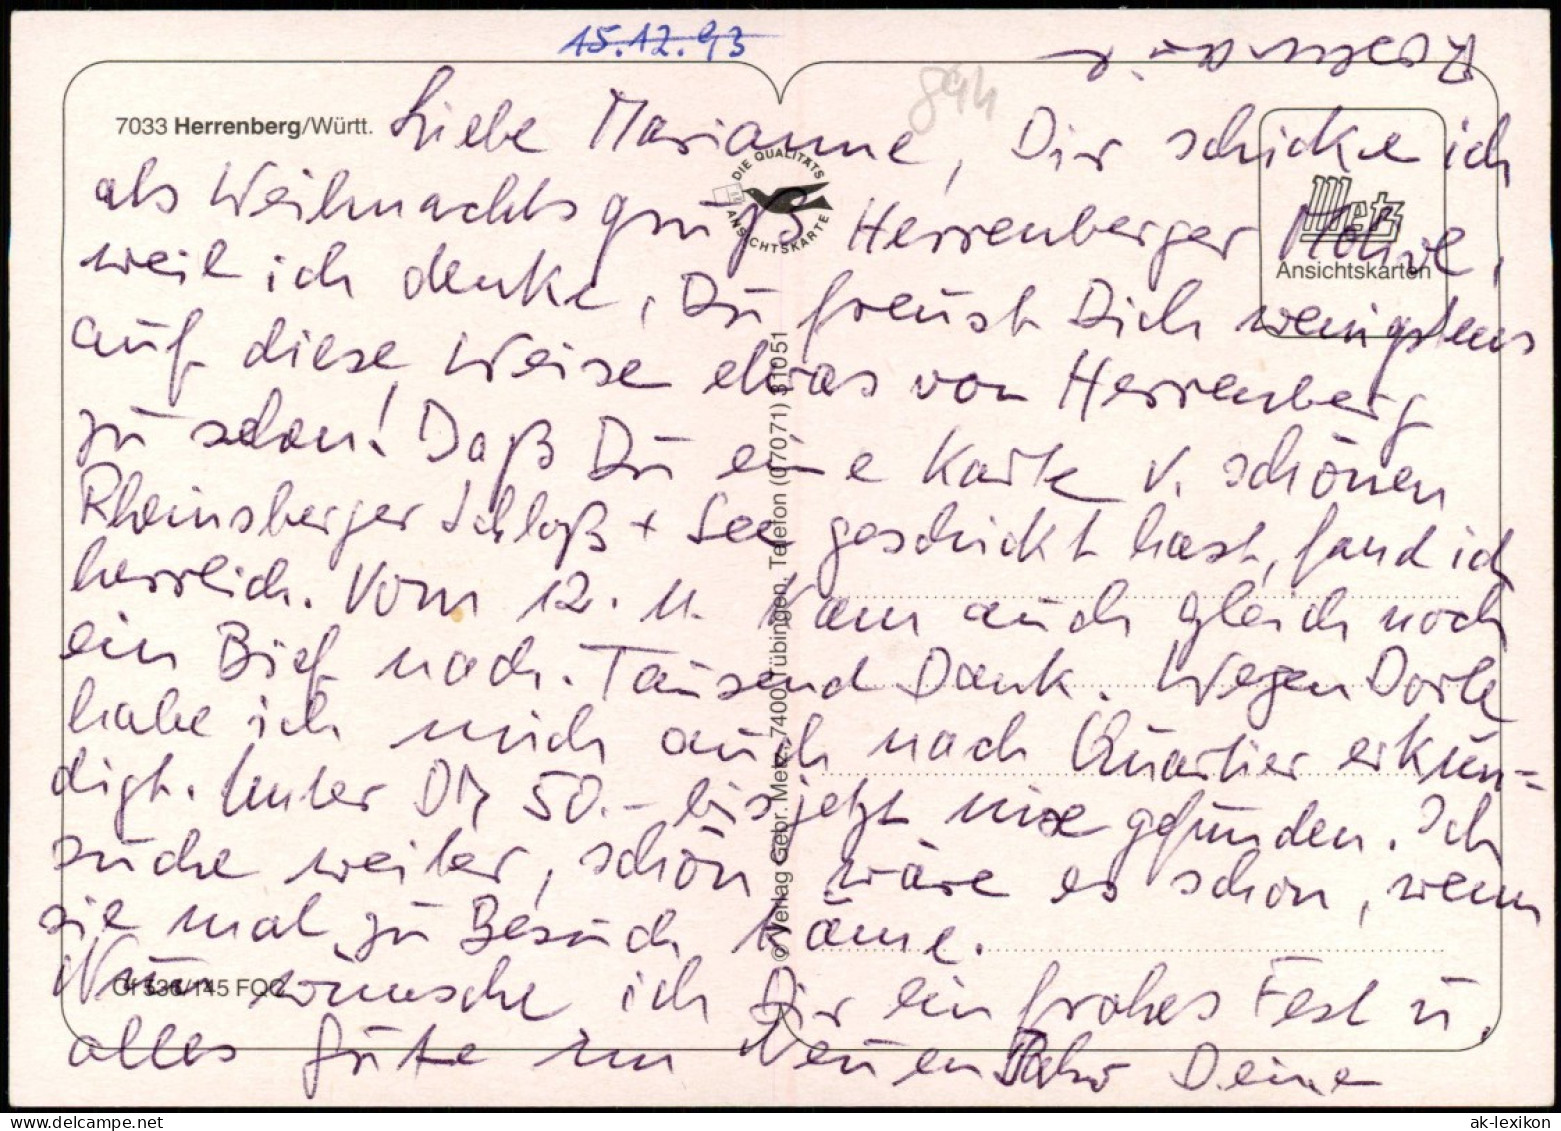 15.12.93
894
7033 Herrenberg/Württ.
Liebe Marianne, Dir schicke ich
als Weihnachtsgruß Herrenberger Motive,
weil ich denke, Du freust Dich wenigstens
auf diese Weise etwas von Herrenberg
zu sehen! Daß Du eine Karte v. schönen
Rheinsberger Schloß + See geschickt hast, fand ich
herrlich. Vom 12. 11. kam auch gleich noch
ein Brief nach. Tausend Dank. Wegen Dorle
habe ich mich auch nach Quartier erkun=
digt. Unter DM 50.- bis jetzt nix gefunden. Ich
suche weiter, schön wäre es schon, wenn
sie mal zu Besuch käme.
Nun wünsche ich Dir ein frohes Fest u.
alles Gute im Neuen Jahr Deine
Rosemarie
DIE QUALITÄTS
ANSICHTSKARTE
Metz
Ansichtskarten
© Verlag Gebr. Metz, 7400 Tübingen, Telefon (07071) 31051
Of 536/145 FOC
ak-lexikon